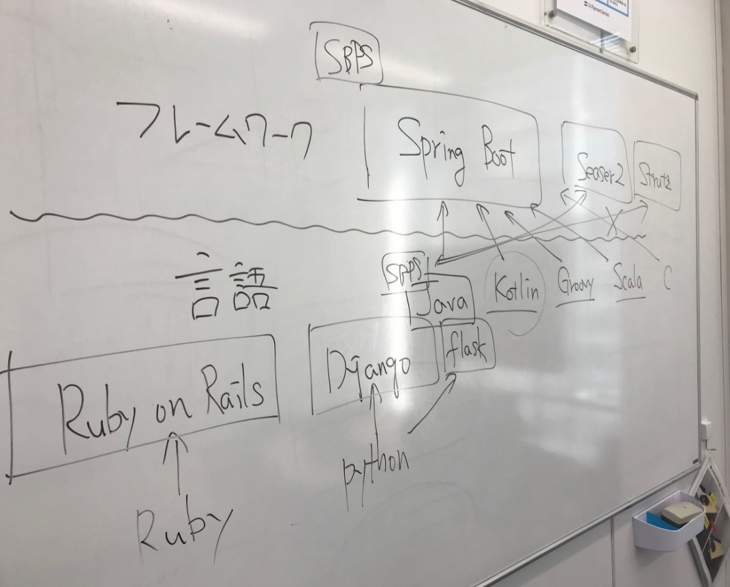 SBPS
フレームワーク
Spring Boot
Seaser2
Struts
言語
SBPS
Java
Kotlin
Groovy
Scala
C
Ruby on Rails
Django
flask
python
Ruby